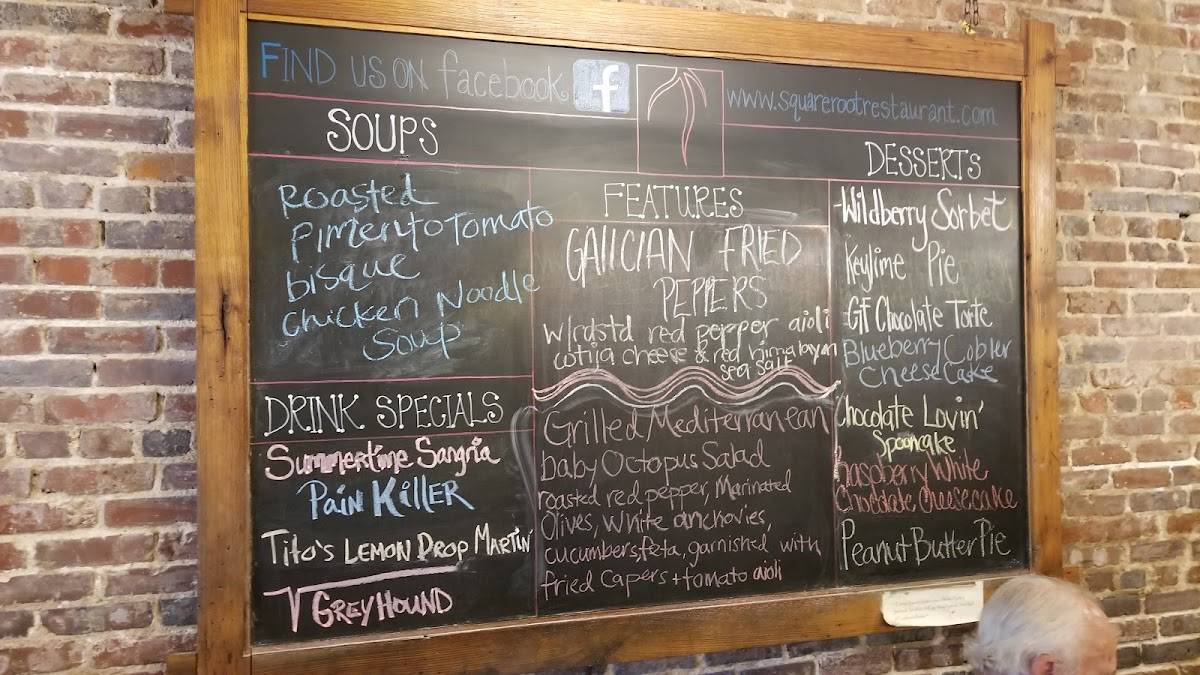 FIND US ON facebook f
www.squarerootrestaurant.com
SOUPS
Roasted
Pimento Tomato
bisque
Chicken Noodle
Soup
DRINK SPECIALS
Summertime Sangria
PAIN KILLER
Tito's LEMON DROP MARTINI
GREYHOUND
FEATURES
GAlICIAN FRIED
PEPPERS
W/rdstd red pepper aioli
cotija cheese & red himalayan
sea salt
Grilled Mediterranean
baby Octopus Salad
roasted red pepper, Marinated
Olives, White anchovies,
cucumbers, feta, garnished with
fried Capers + tomato aioli
DESSERTS
-Wildberry Sorbet
Keylime Pie
-GF Chocolate Torte
Blueberry Cobler
Cheese Cake
Chocolate Lovin'
Spooncake
Raspberry White
Chocolate Cheesecake
Peanut Butter Pie